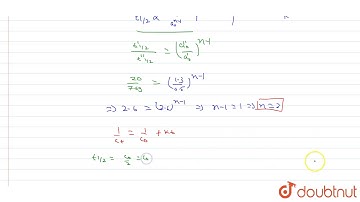 t1/2 α 1/a₀ⁿ⁻¹
t'1/2 / t''1/2 = (a''₀/a'₀)ⁿ⁻¹
⇒ 2.6 = (2.6)ⁿ⁻¹ ⇒ n-1 = 1 ⇒ n=2
1/Ct = 1/C0 + Kt
t1/2 = C0/2 = C0
doubtnut